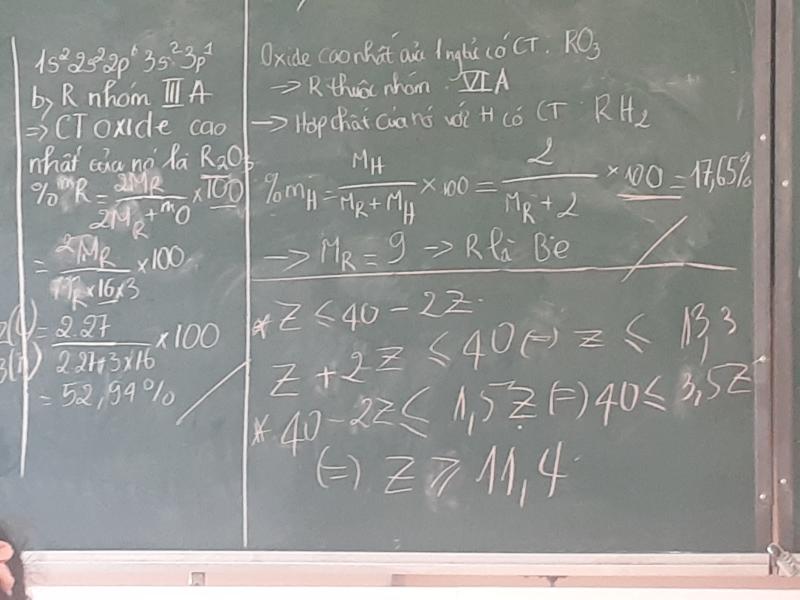 1s² 2s² 2p⁶ 3s² 3p¹
b, R nhóm III A
=> CT oxide cao
nhất của nó là R₂O₃
% mR = 2MR / (2MR + mO) × 100
= 2MR / (MR × 16 × 3) × 100
= 2.27 / (2.27 + 3×16) × 100
= 52,94%
Oxide cao nhất của 1 ngtử có CT. RO₃
→ R thuộc nhóm VI A
→ Hợp chất của nó với H có CT RH₂
%mH = MH / (MR + MH) × 100 = 2 / (MR + 2) × 100 = 17,65%
→ MR = 9 → R là Be
* Z ≤ 40 - 2Z
Z + 2Z ≤ 40 (=) Z ≤ 13,3
* 40 - 2Z ≤ 1,5Z (=) 40 ≤ 3,5Z
(=) Z ≥ 11,4